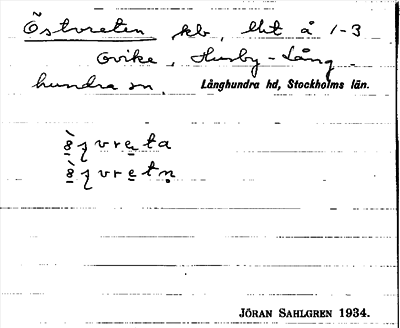 Östvreten kb, lht å 1-3
Gvike, Husby-Lång-
hundra sn. Långhundra hd, Stockholms län.
vreta
vretn̥
JÖRAN SAHLGREN 1934.